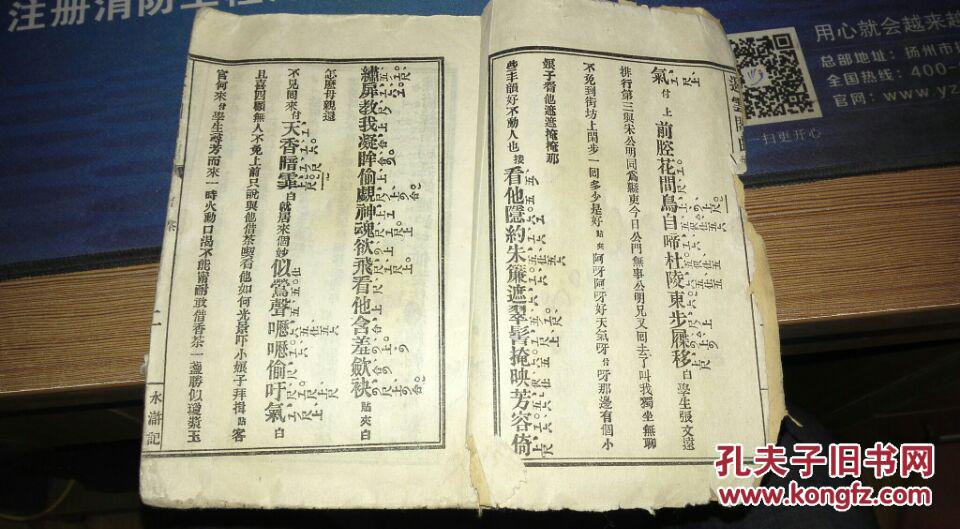 注册消防工程
用心就会越来越
总部地址：扬州市
全国热线：400-
官网：www.yz
扫更开心
氣付上前腔花間鳥自啼杜陵東步屧移白學生張文遠
排行第三與宋公明同爲縣吏今日公門無事公明兄又回去了叫我獨坐無聊
不免到街坊上閑步一回多少是好貼夾阿呀阿呀好天氣呀付呀那邊有個小
娘子看他遮遮掩掩那
些丰韻好不動人也接看他隱約朱簾遮翠髻掩映芳容倚
繡屏敎我凝眸偷覷神魂欲飛看他含羞歛袂貼夾白
怎麽母親還
不見回來付天香暗霏白就居來個妙似鶯聲嚦嚦偷吁氣白
且喜四顧無人不免上前只說與他借茶喫看他如何光景吓小娘子拜揖貼客
官何來付學生尋芳而來一時火動口渴不能甯耐敢借香茶一盞勝似瓊漿玉
二
水滸記
孔夫子旧书网
www.kongfz.com